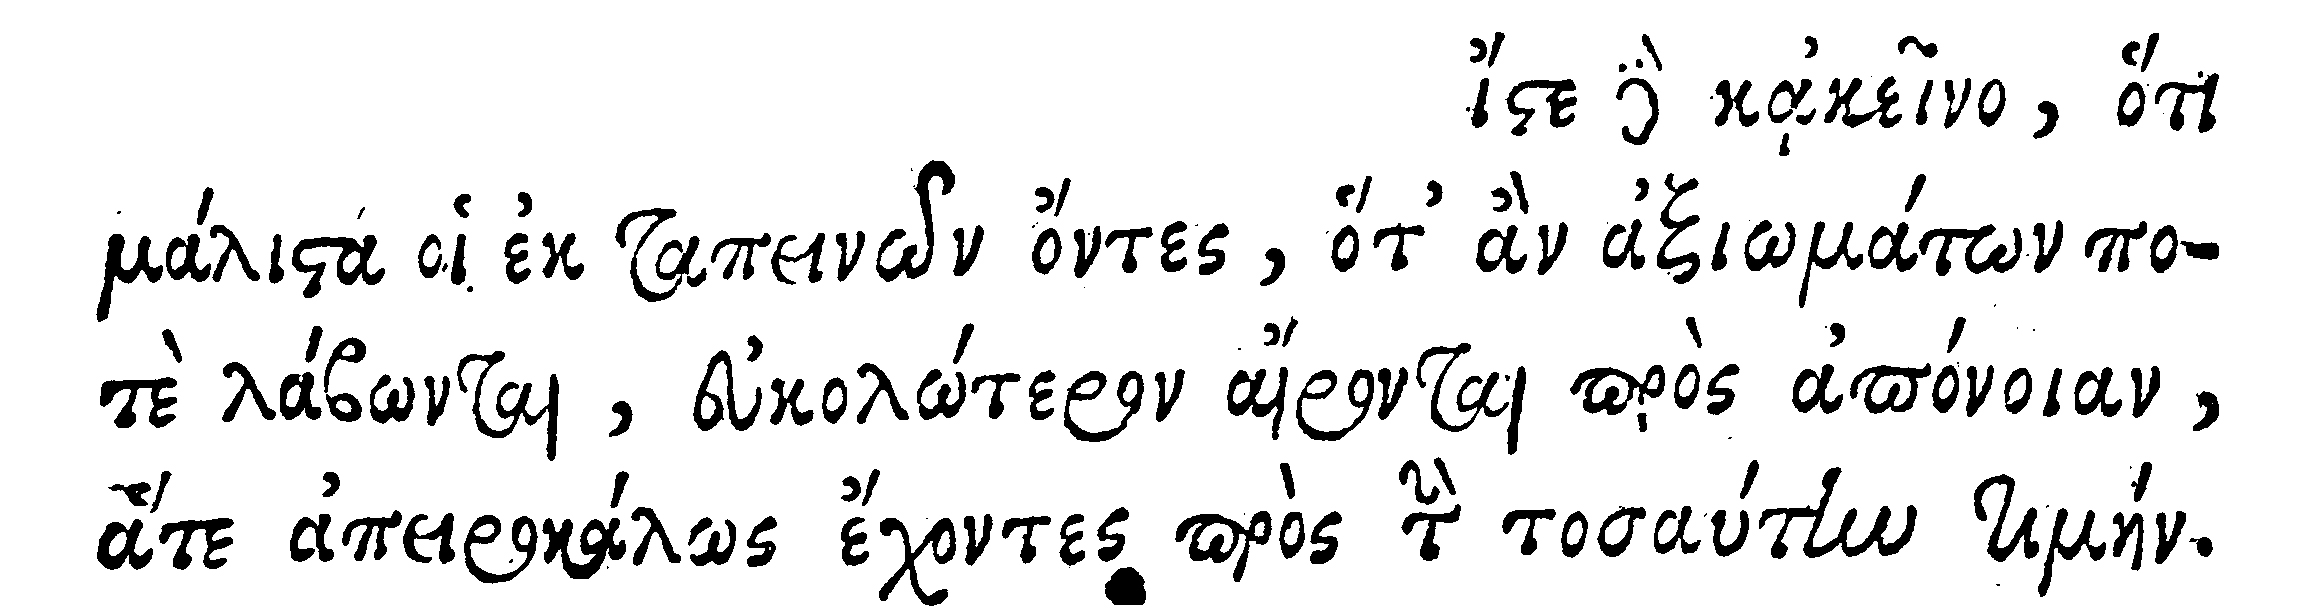 ἴστε δὲ κᾀκεῖνο, ὅτι
μάλιστα οἱ ἐκ ταπεινῶν ὄντες, ὅτ᾽ ἂν ἀξιωμάτων πο-
τὲ λάβωνται, εὐκολώτερον αἴρονται πρὸς ἀπόνοιαν,
ἅτε ἀπειροκάλως ἔχοντες πρὸς τὴν τοσαύτην τιμήν.